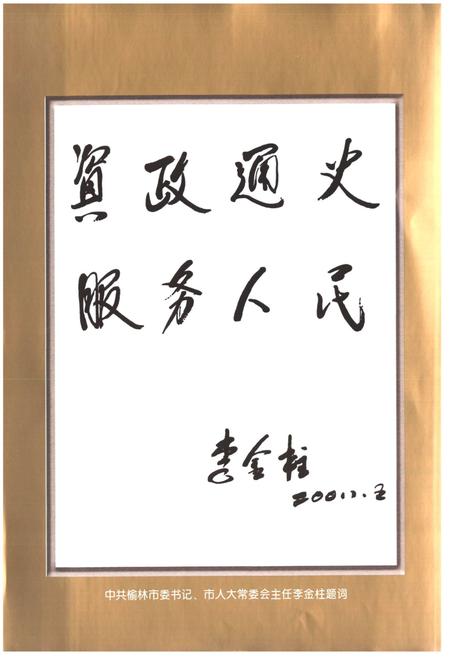 資政通史
服务人民
李金柱
中共榆林市委书记、市人大常委会主任李金柱题词